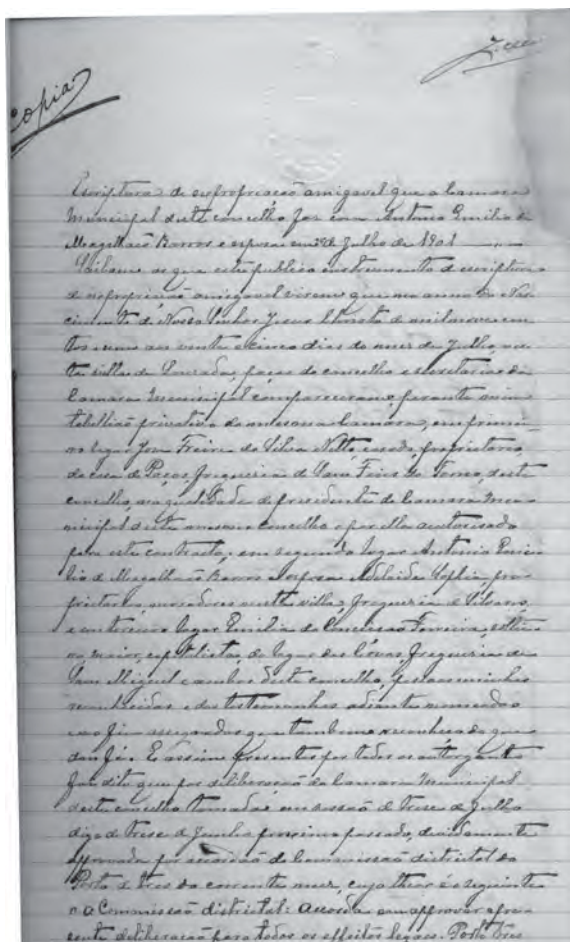 Copia
Escriptura de expropriação amigavel que a Camara
Municipal deste concelho faz com Antonio Emilio de
Magalhães Barros e esposa em 25 de Julho de 1901
Saibam os que este publico instrumento de escriptura
de expropriação amigavel virem que no anno do Nas
cimento de Nosso Senhor Jesus Christo de mil nove cen
tos e um aos vinte e cinco dias do mez de Julho, nes
ta villa de Louzada, paços do concelho e secretaria da
Camara Municipal compareceram perante mim
tabellião privativo da mesma Camara, em primei
ro logar José Freire da Silva Netto, casado, proprietario,
da casa de Paços, freguezia de Sam Fins do Torno, deste
concelho, na qualidade de presidente da Camara Mu
nicipal deste mesmo concelho e por ella autorisado
para este contracto; em segundo logar Antonio Emi
lio de Magalhães Barros e esposa Adelaide Sophia, pro
prietarios, moradores nesta villa, freguezia de Silvares,
e em terceiro logar Emilia da Conceição Ferreira, soltei
ra, maior, capitalista, do logar das Côvas, freguezia de
Sam Miguel e ambos deste concelho, pessoas minhas
reconhecidas e das testemunhas adiante nomeadas
e no fim assignadas que tambem reconheço do que
dou fé. E assim presentes por todos os outorgantes
foi dito que por deliberação da Camara Municipal
deste concelho tomada em sessão de treze de Julho
digo de treze de Junho proximo passado, devidamente
approvada por accordão da Commissão districtal do
Porto de tres do corrente mez, cujo theor é o seguinte
"A Commissão districtal: acorda em approvar a pre
sente deliberação para todos os effeitos legaes. Porto tres